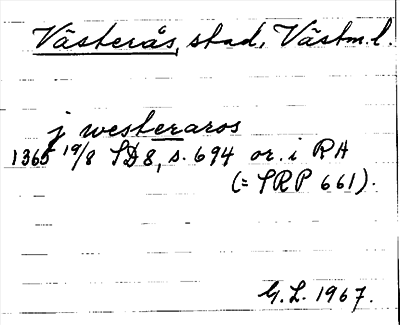 Västerås, stad, Västm.l.
j westeraros
1365 19/8 SD8, s. 694 or. i RA
(= SRP 661).
G.L. 1967.